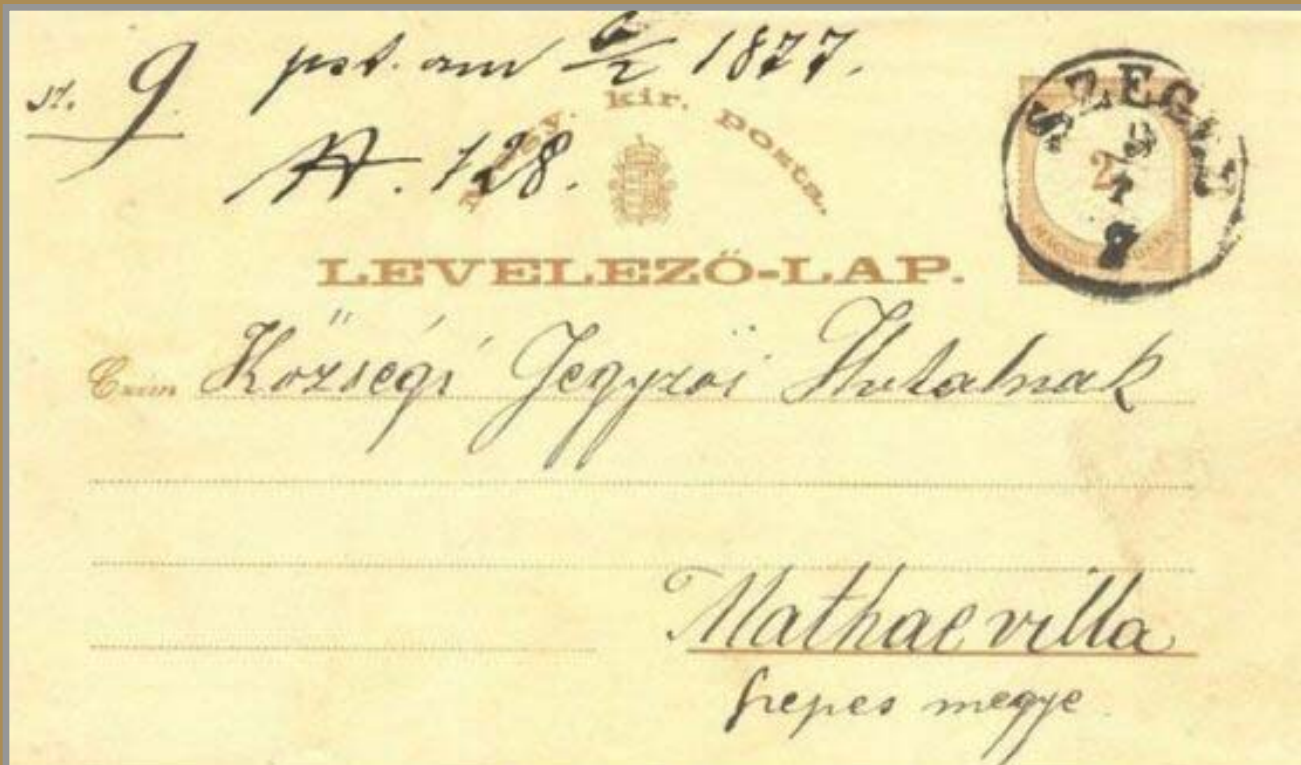 st. 9 pst. am 6/2 1877.
A. 128.
Magy. kir. posta.
SZEGED
2
LEVELEZŐ-LAP.
Czim Községi Jegyzői Hivatalnak
Mathaevilla
Szepes megye.